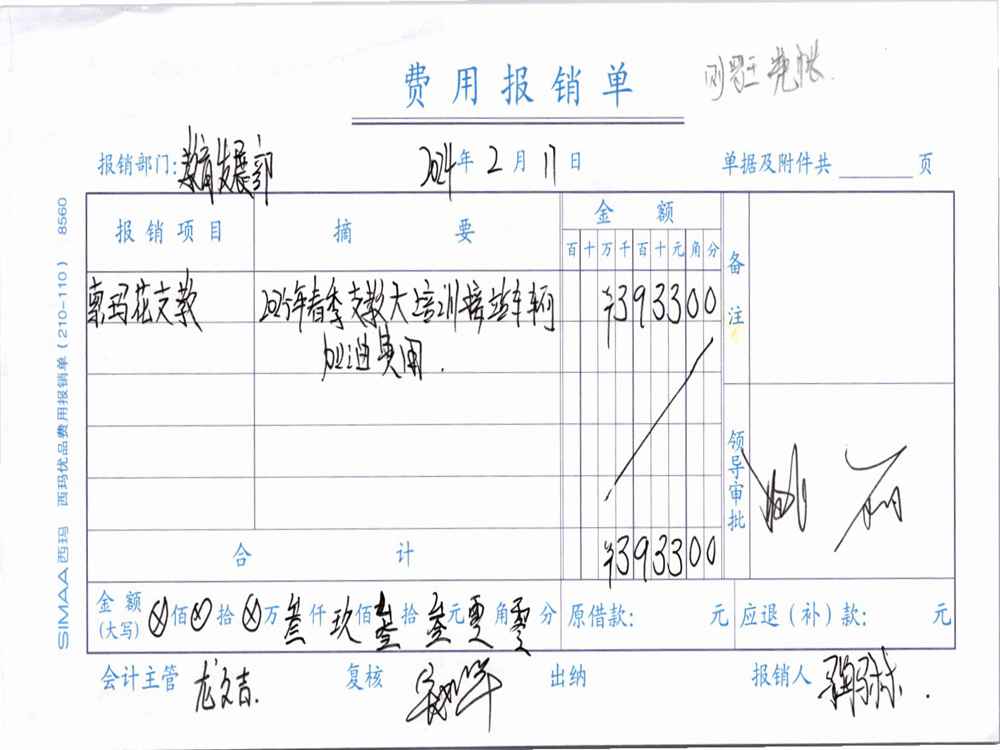 费用报销单
报销部门:教育发展部 2024年2月17日 单据及附件共 页
报销项目 摘要 金额 备注
百十万千百十元角分
索玛花支教 春季支教大培训接站车辆 ¥393300
加油费用.
领导审批
合计 ¥393300
金额(大写) ⊗佰⊗拾⊗万叁仟玖佰叁拾叁元零角零分 原借款: 元 应退(补)款: 元
会计主管 龙文吉. 复核 出纳 报销人
SIMAA西玛 西玛优品费用报销单(210-110) 8560